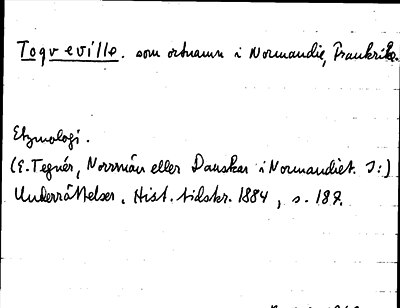 Toqueville. som ortnamn i Normandie, Frankrike.
Etymologi.
(E. Tegnér, Norrmän eller Danskar i Normandiet. I:)
Underrättelser. Hist. tidskr. 1884, s. 189.